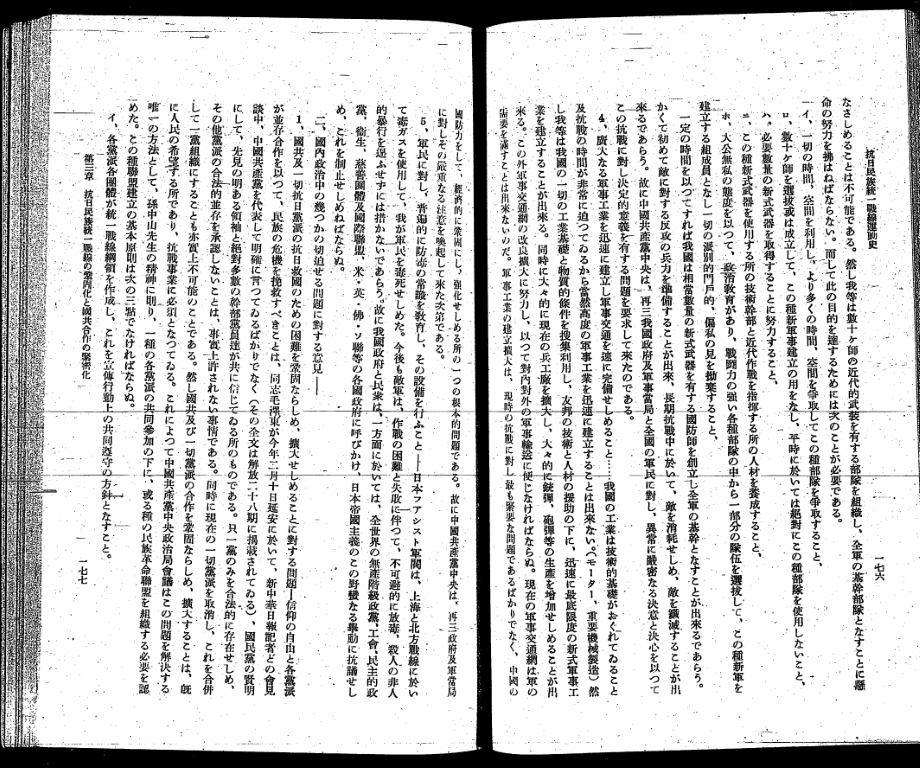 抗日民族統一戰線運動史
一七六
なさしめることは不可能である。然し我等は數十ヶ師の近代的武裝を有する部隊を組織し、全軍の基幹部隊となすことに懸
命の努力を拂はねばならない。而して此の目的を達するためには次のことが必要である。
イ、一切の時間、空間を利用し、より多くの時間、空間を爭取してこの種部隊を爭取すること、
ロ、數十ヶ師を選拔或は成立して、この種新軍事建立の用をなし、平時に於いては絕對にこの種部隊を使用しないこと、
ハ、必要數量の新式武器を取得することに努力すること、
ニ、この種新式武器を使用する所の技術幹部と近代作戰を指揮する所の人材を養成すること、
ホ、大公無私の態度を以つて、政治教育があり、戰鬪力の强い各種部隊の中から一部分の隊伍を選拔して、この種新軍を
建立する組成員となし一切の派別的門戶的、偏私の見を拗棄すること、
一定の時間を以つてすれば我國は相當數量の新式武器を有する國防師を創立し全軍の基幹となすことが出來るであらう。
かくて初めて敵に對する反攻の兵力を準備することが出來、長期抗戰中に於いて、敵を消耗せしめ、敵を殲滅することが出
來るであらう。故に中國共產黨中央は、再三我國政府及軍事當局と全國の軍民に對し、異常に嚴密なる決意と決心を以つて
この抗戰に對し決定的意義を有する問題を要求して來たのである。
4、廣大なる軍事工業を迅速に建立し軍事交通を速に完備せしめること……我國の工業は技術的基礎がおくれてゐること
及抗戰の時間が非常に迫つてゐるから當然高度の軍事工業を迅速に建立することは出來ない。(モーター、重要機械製造)然
し我等は我國の一切の工業基礎と物質的條件を搜集利用し、友邦の技術と人材の援助の下に、迅速に最底限度の新式軍事工
業を建立することが出來る。同時に大々的に現在の兵工廠を擴大し、大々的に銃彈、砲彈等の生產を增加せしめることが出
來る。この外軍事交通網の改良擴大に努力し、以つて對內對外の軍事輸送に便じなければならぬ。現在の軍事交通網は軍の
需要を滿すことは出來ないのだ。軍事工業の建立擴大は、現時の抗戰に對し最も緊要な問題であるばかりでなく、中國の
國防力をして、經濟的に鞏固にし、强化せしめる所の一つの根本的問題である。故に中國共產黨中央は、再三政府及軍當局
に對しその嚴重なる注意を喚起して來た次第である。
5、軍民に對し、普遍的に防毒の常識を教育し、その設備を行ふこと――日本フアシスト軍閥は、上海と北方戰線に於い
て毒ガスを使用して、我が軍民を毒死せしめた。今後も敵軍は、作戰の困難と失敗に伴つて、不可避的に放毒、殺人の非人
的暴行を逞ふせずには措かないであらう。故に我國政府と民衆は、一方面に於いては、全世界の無產階級政黨、工會、民主的政
黨、衞生、慈善團體及國際聯盟、米・英・佛・ソ聯等の各國政府に呼びかけ、日本帝國主義のこの野蠻なる擧動に抗議せし
め、これを制止せしめねばならぬ。
二、國內政治中の幾つかの切迫せる問題に對する意見――
1、國共及一切抗日黨派の抗日救國のための困難を鞏固ならしめ、擴大せしめることに對する問題――信仰の自由と各黨派
が並存合作を以つて、民族の危機を挽救すべきことは、同志毛澤東が今年二月十日延安に於いて、新中華日報記者どの會見
談中、中國共產黨を代表して明確に言つてゐるばかりでなく(その全文は解放二十八期に揭載されてゐる)、國民黨の賢明
にして、先見の明ある領袖と絕對多數の幹部黨員達が共に信じてゐる所のものである。只一黨のみを合法的に存在せしめ、
その他黨派の合法的並存を承認しないことは、事實上許されない事情である。同時に現在の一切黨派を取消し、これを合倂
して一黨組織にすることも亦實上不可能のことである。然し國共及び一切黨派の合作を鞏固ならしめ、擴大することは、旣
に人民の希望する所であり、抗戰事業に必須となつてゐる。これによつて中國共產黨中央政治局會議はこの問題を解決する
唯一の方法として、孫中山先生の精神に則り、一種の各黨派の共同參加の下に、或る種の民族革命聯盟を組織する必要を認
めた。この種聯盟建立の基本原則は次の三點でなければならぬ。
イ、各黨派各團體が統一戰線綱領を作成し、これを宣傳行動上の共同遵守の方針となすこと。
第三章 抗日民族統一戰線の業內化と國共合作の緊密化
一七七